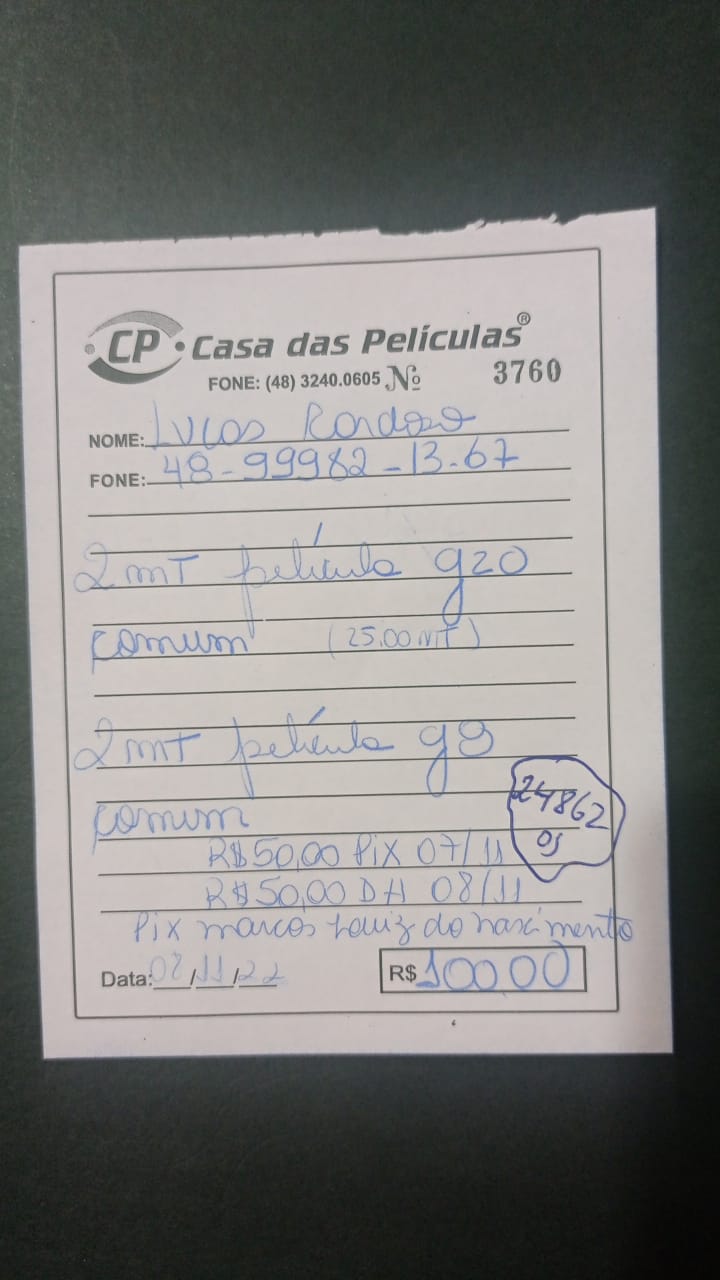 CP Casa das Películas®
FONE: (48) 3240.0605 Nº 3760
NOME: Lucas
FONE: 48-99982-13.67
2 mT película g20
comum (25,00 MT)
2 mT película g8
comum
24862
os
R$50,00 Pix 07/11
R$50,00 DH 08/11
Pix marcos Luiz do nascimento
Data: 08/11/22 R$ 100 00